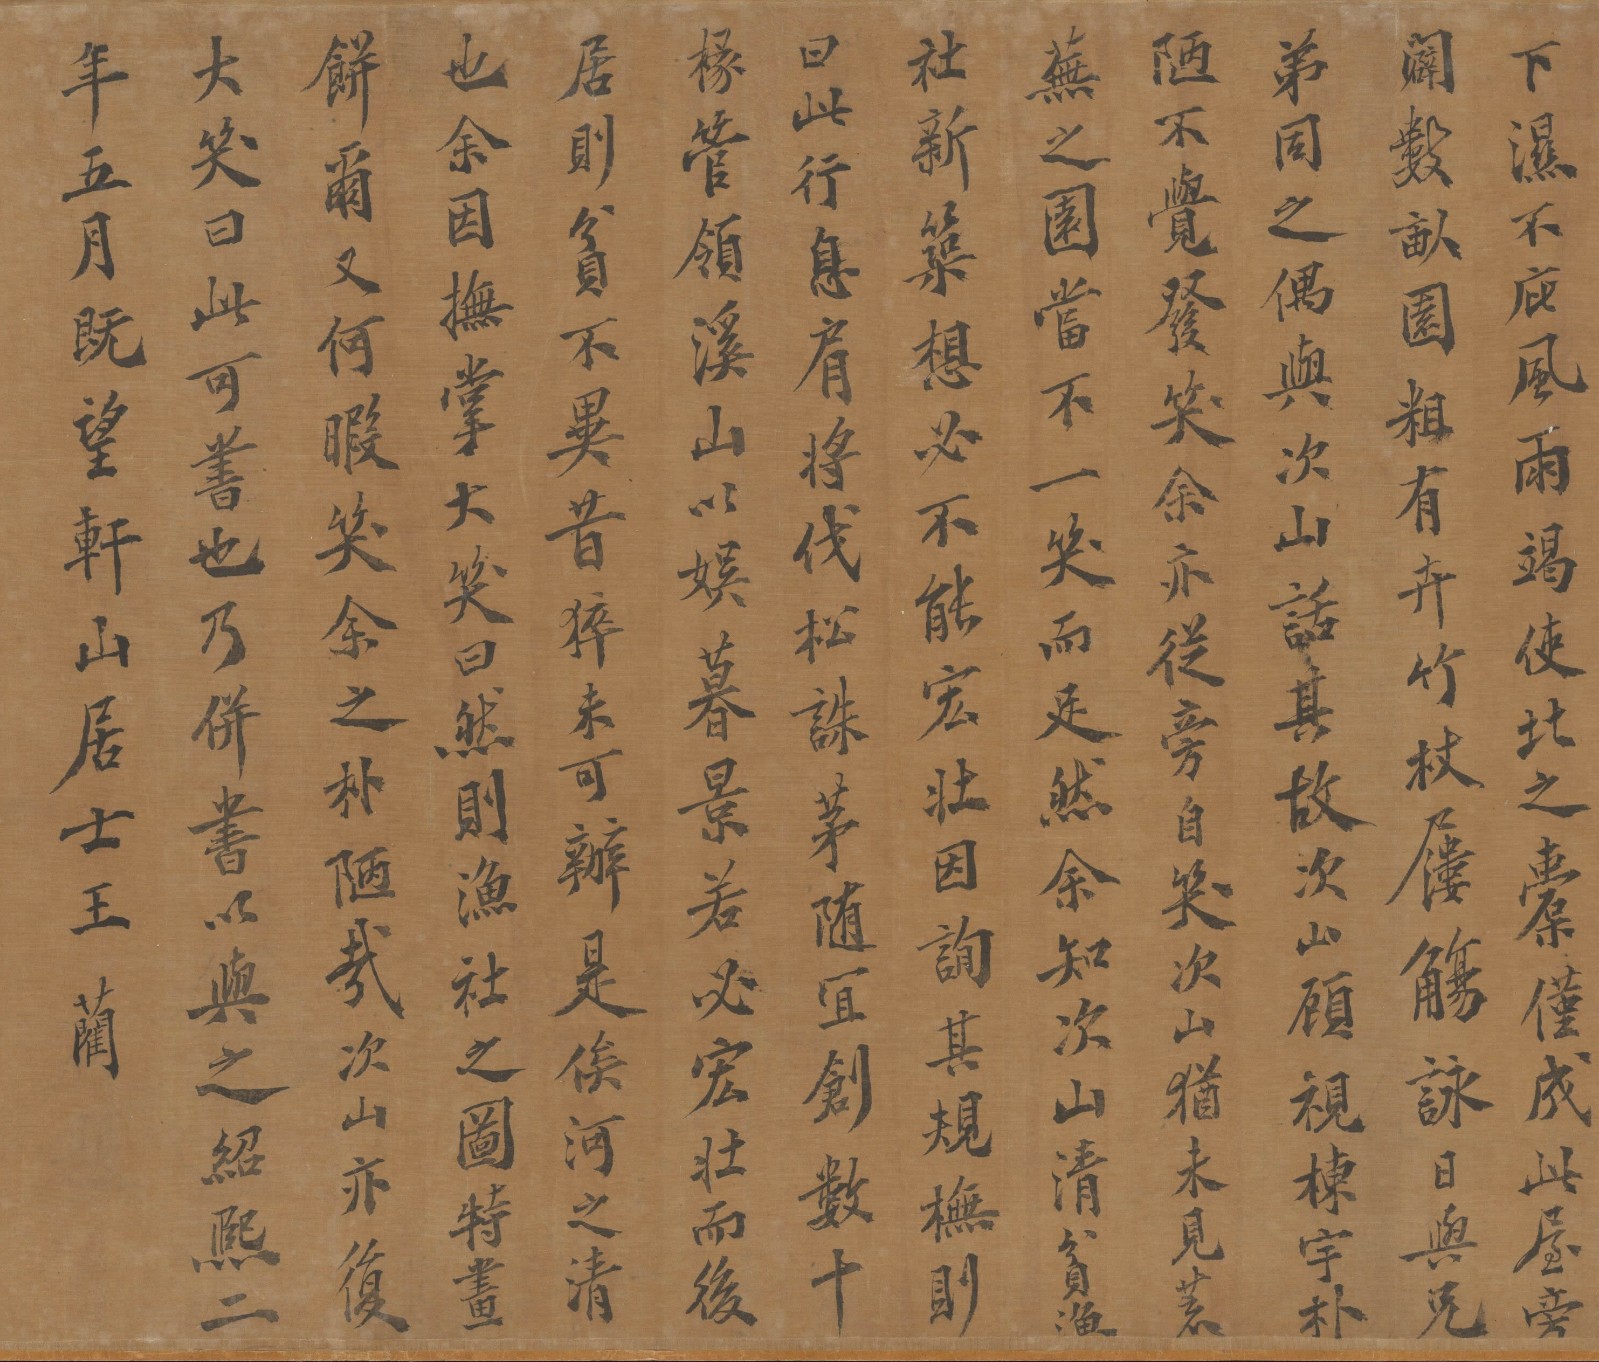 下濕不庇風雨竭使北之橐僅成此屋旁
闢數畝園粗有卉竹杖屨觴詠日與兄
弟同之偶與次山話其故次山顧視棟宇朴
陋不覺發笑余亦從旁自笑次山猶未見荒
蕪之園當不一笑而足然余知次山清貧漁
社新築想必不能宏壯因詢其規橅則
曰此行息肩將伐松誅茅随宜創數十
椽管領溪山以娱暮景若必宏壯而後
居則貧不異昔猝未可辦是俟河之清
也余因撫掌大笑曰然則漁社之圖特畫
餅爾又何暇笑余之朴陋哉次山亦復
大笑曰此可書也乃併書以與之紹熙二
年五月既望軒山居士王藺